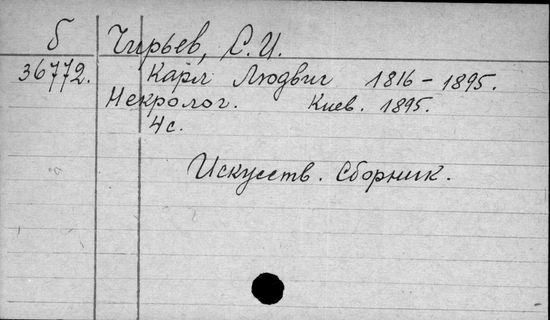 Б Чирьев, С.И.
36772. Карл Людвиг 1816-1895.
Некролог. Киев. 1895.
4с.
Искусств. Сборник.